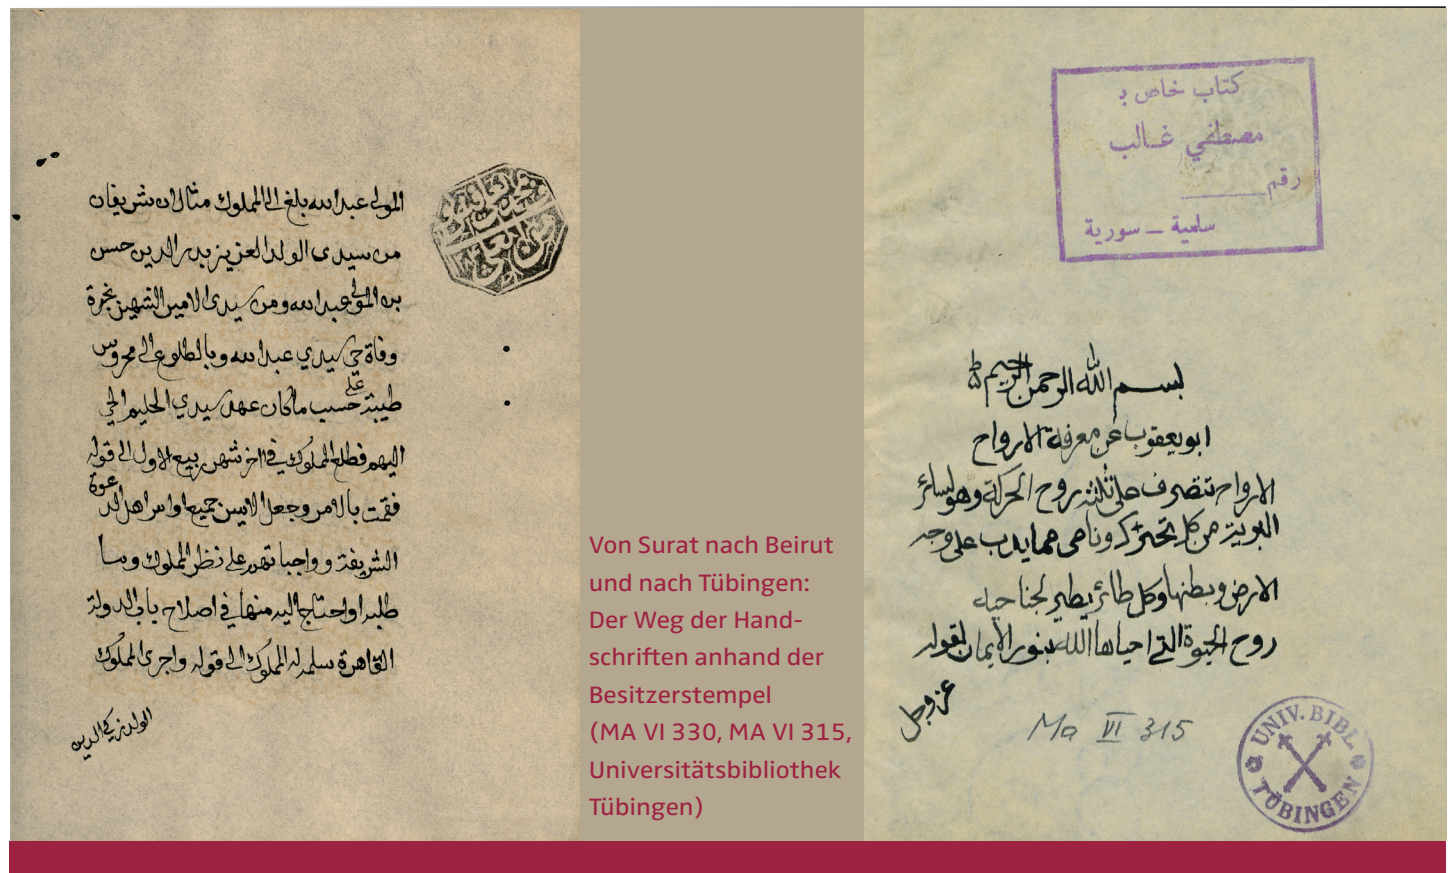 المولى عبد الله بلغ الى المملوك مثالان شريفان
من سيدي الولد العزيز بدر الدين حسن
بن المولى عبد الله ومن سيدي الامين
وفاة سيدي عبد الله وبالطلوع الى محروس
طيبة على حسب ماكان عهد سيدي الحليم
اليهم فطلع المملوك في اخر شهر ربيع الاول الى قوله
فقمت بالامر وجعل جميعا اهل الدعوة
الشريفة و على نظر المملوك وسا
اليه منها في اصلاح باب الدولة
القاهرة المملوك الى قوله واجرى المملوك
الولد زكي الدين
Von Surat nach Beirut
und nach Tübingen:
Der Weg der Hand-
schriften anhand der
Besitzerstempel
(MA VI 330, MA VI 315,
Universitätsbibliothek
Tübingen)
كتاب خاص بـ
مصطفي غـالب
رقم
سلمية ــ سورية
بسم الله الرحمن الرحيم
ابو يعقوب عن معرفة الارواح
الارواح تتصرف على ثلثة روح الحركة وهو لسائر
البرية من كل متحرك مما يدب على وجه
الارض وبطنها وكل طائر يطير بجناحيه
روح الحيوة التي احياها الله بنور الايمان لقوله
عز وجل
Ma VI 315
UNIV. BIBL.
TÜBINGEN